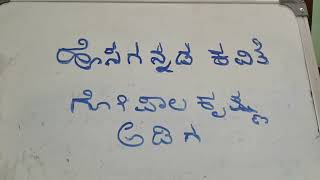 ಹೊಸಗನ್ನಡ ಕವಿತೆ
ಗೋಪಾಲ ಕೃಷ್ಣ
ಅಡಿಗ